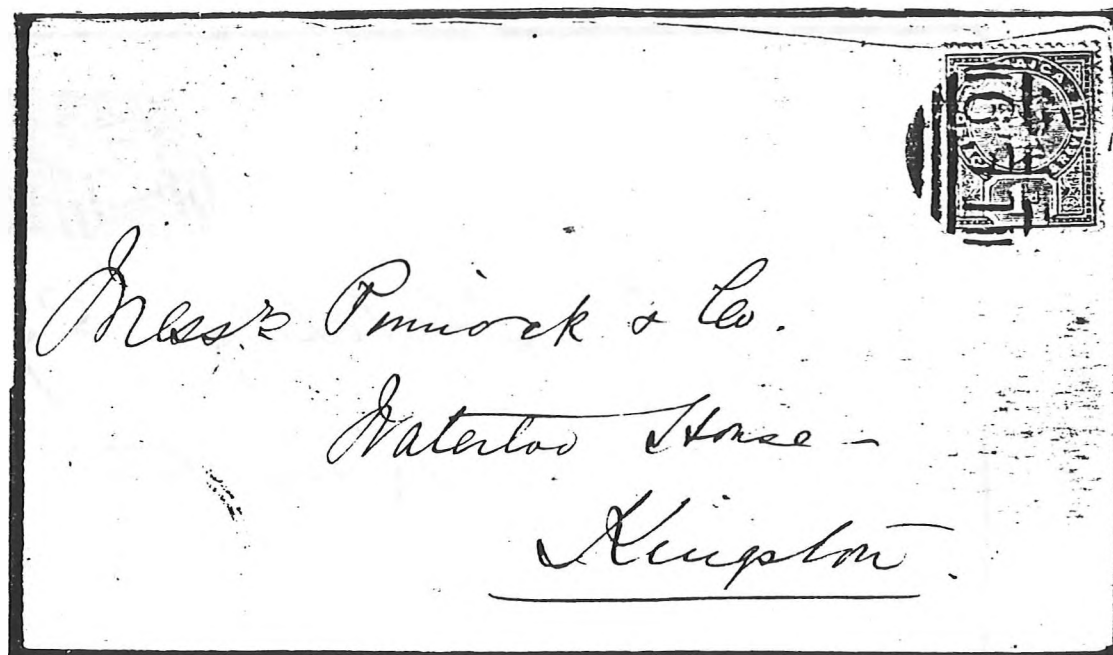 JAMAICA
Messrs Pinnock & Co.
Waterloo House -
Kingston.